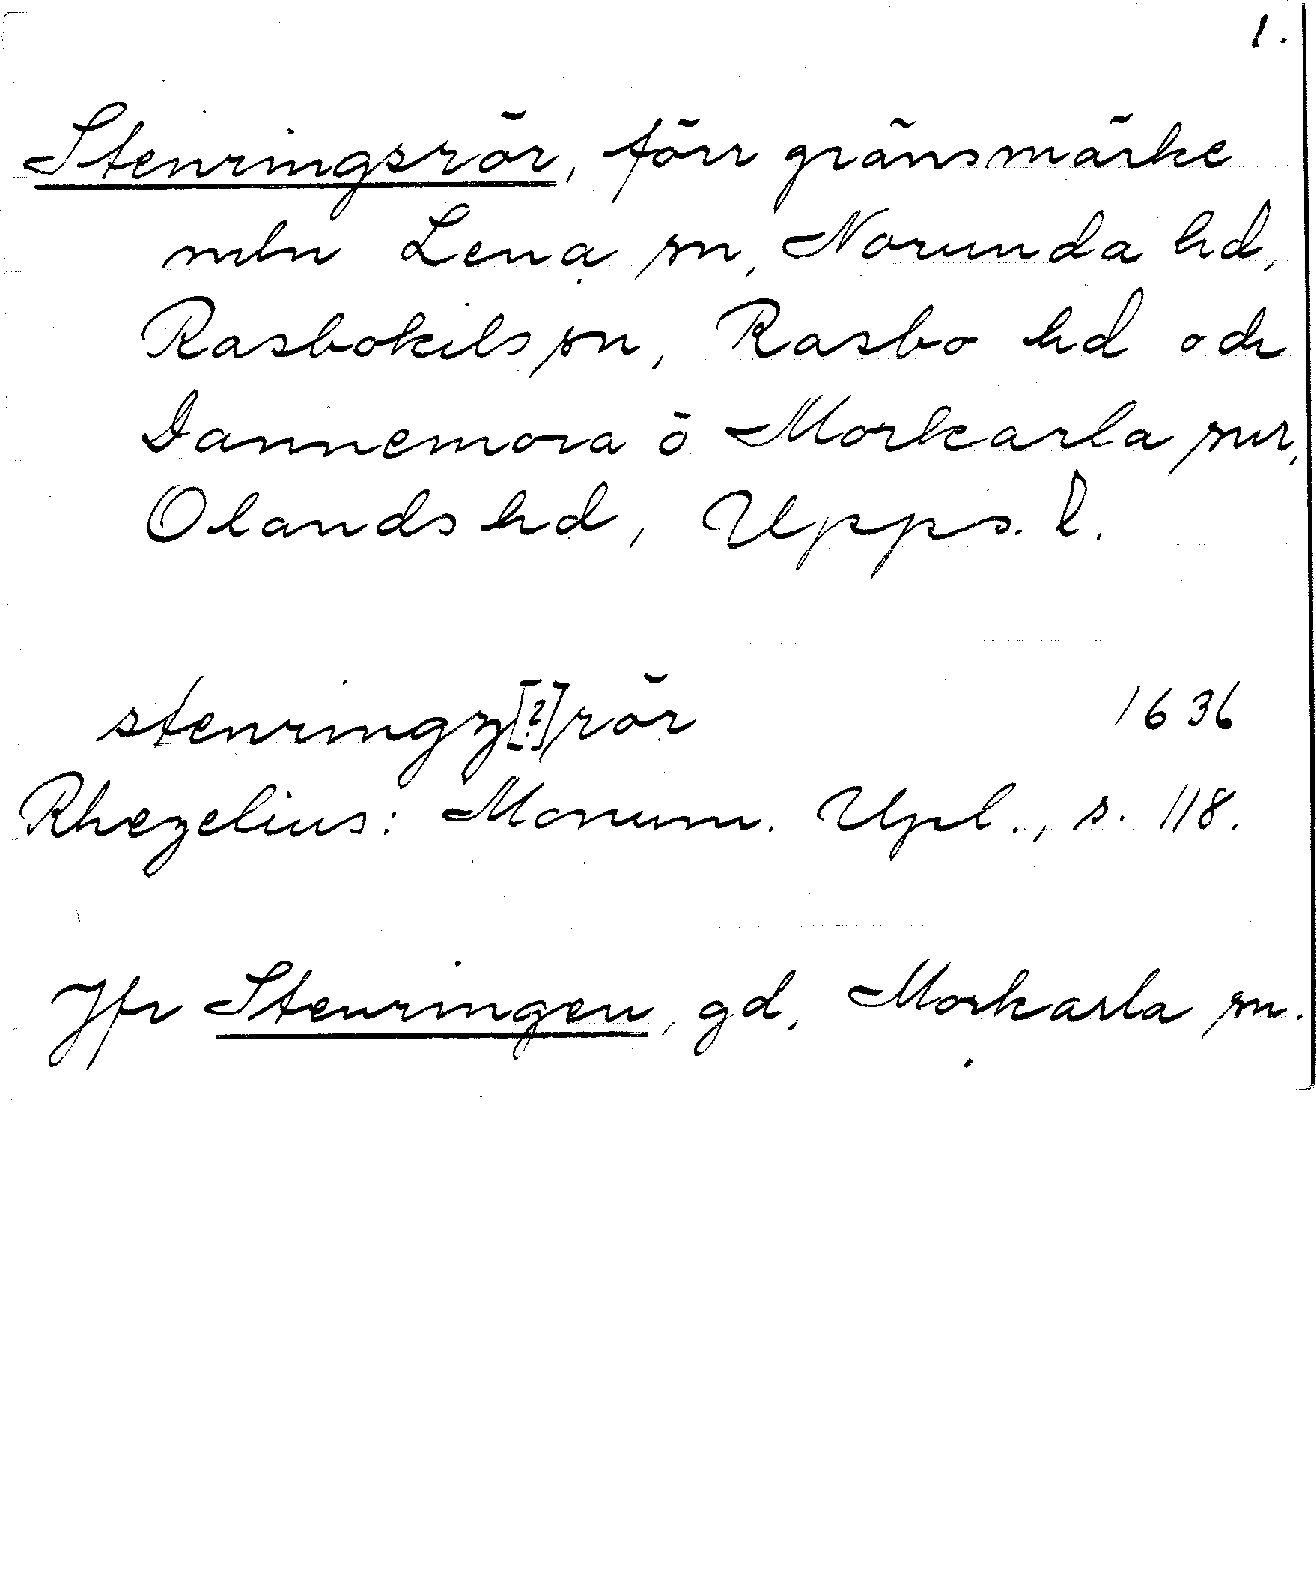 1.
Stenringsrör, förr gränsmärke
mln Lena sn, Norunda hd,
Rasbokils sn, Rasbo hd och
Dannemora o Morkarla snr,
Olands hd, Upps. l.
stenringz[?]rör 1636
Rhezelius: Monum. Upl., s. 118.
Jfr Stenringen, gd, Morkarla sn.